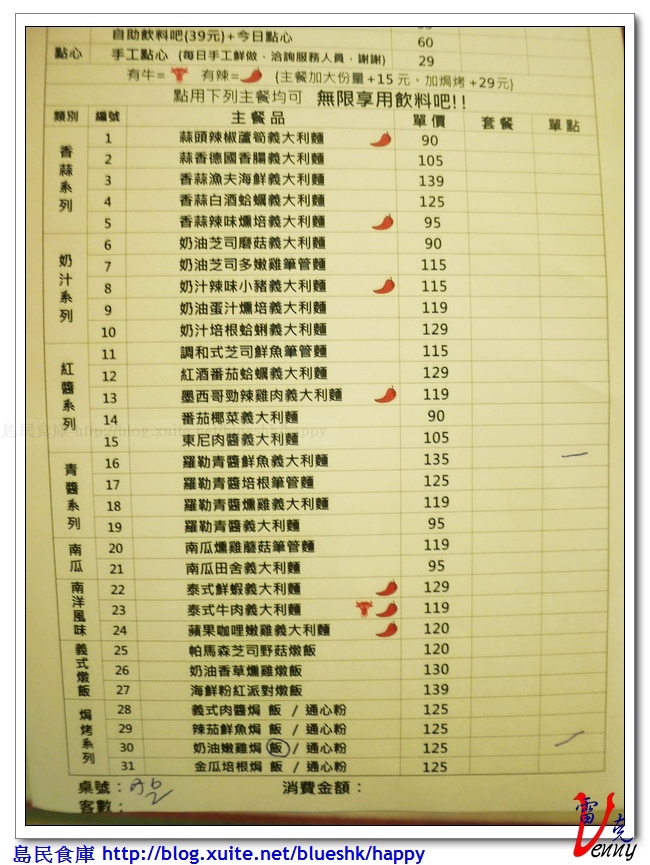 自助飲料吧(39元)+今日點心
60
點心 手工點心 (每日手工鮮做，洽詢服務人員，謝謝) 29
有牛= 有辣= (主餐加大份量+15元。加焗烤+29元)
點用下列主餐均可 無限享用飲料吧!!
類別 編號 主餐品 單價 套餐 單點
香蒜系列
1 蒜頭辣椒蘆筍義大利麵 90
2 蒜香德國香腸義大利麵 105
3 香蒜漁夫海鮮義大利麵 139
4 香蒜白酒蛤蠣義大利麵 125
5 香蒜辣味燻培義大利麵 95
奶汁系列
6 奶油芝司磨菇義大利麵 90
7 奶油芝司多嫩雞筆管麵 115
8 奶汁辣味小豬義大利麵 115
9 奶油蛋汁燻培義大利麵 119
10 奶汁培根蛤蜊義大利麵 129
紅醬系列
11 調和式芝司鮮魚筆管麵 115
12 紅酒番茄蛤蠣義大利麵 129
13 墨西哥勁辣雞肉義大利麵 119
14 番茄椰菜義大利麵 90
15 東尼肉醬義大利麵 105
青醬系列
16 羅勒青醬鮮魚義大利麵 135 一
17 羅勒青醬培根筆管麵 125
18 羅勒青醬燻雞義大利麵 119
19 羅勒青醬義大利麵 95
南瓜
20 南瓜燻雞蘑菇筆管麵 119
21 南瓜田舍義大利麵 95
南洋風味
22 泰式鮮蝦義大利麵 129
23 泰式牛肉義大利麵 119
24 蘋果咖哩嫩雞義大利麵 120
義式燉飯
25 帕馬森芝司野菇燉飯 120
26 奶油香草燻雞燉飯 130
27 海鮮粉紅派對燉飯 139
焗烤系列
28 義式肉醬焗 飯 / 通心粉 125
29 辣茄鮮魚焗 飯 / 通心粉 125
30 奶油嫩雞焗 飯 / 通心粉 125 一
31 金瓜培根焗 飯 / 通心粉 125
桌號： 消費金額：
客數：
島民食庫 http://blog.xuite.net/blueshk/happy
雷克
Venny
島民食庫 http://blog.xuite.net/blueshk/happy